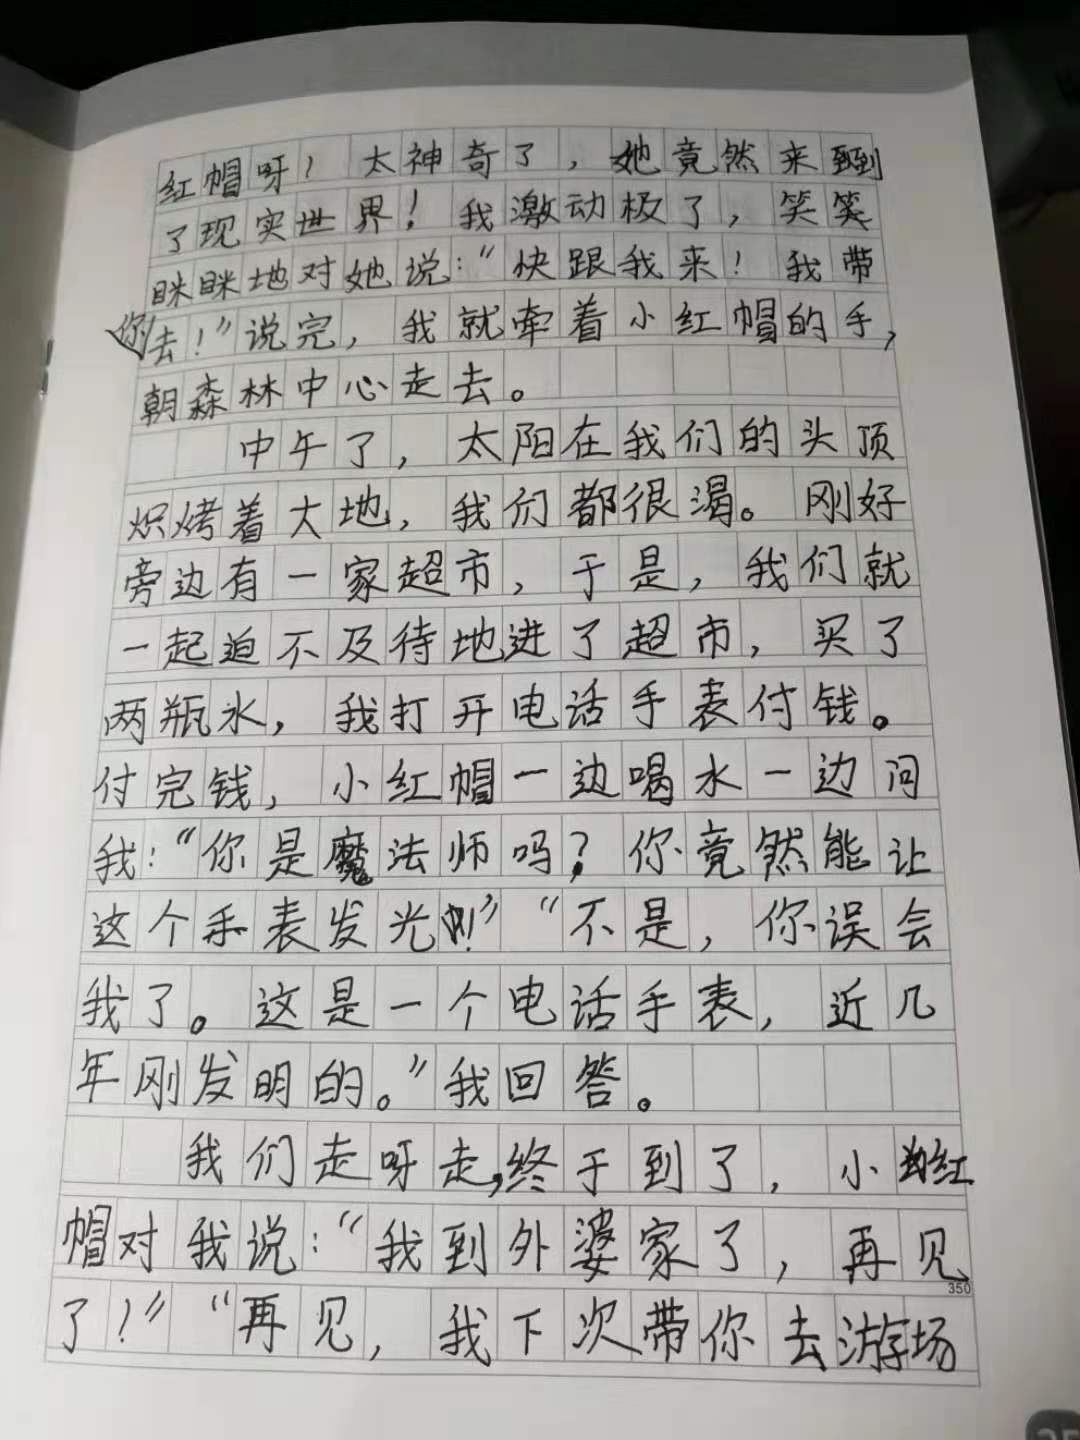 红帽呀！太神奇了，她竟然来到
了现实世界！我激动极了，笑笑
眯眯地对她说：“快跟我来！我带
你去！”说完，我就牵着小红帽的手，
朝森林中心走去。
中午了，太阳在我们的头顶
炽烤着大地，我们都很渴。刚好
旁边有一家超市，于是，我们就
一起迫不及待地进了超市，买了
两瓶水，我打开电话手表付钱。
付完钱，小红帽一边喝水一边问
我：“你是魔法师吗？你竟然能让
这个手表发光！”“不是，你误会
我了。这是一个电话手表，近几
年刚发明的。”我回答。
我们走呀走，终于到了，小红
帽对我说：“我到外婆家了，再见
了！”“再见，我下次带你去游场
350